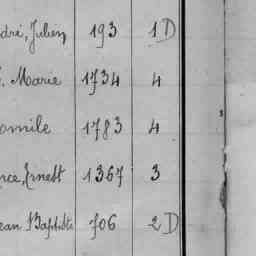 dré, Julien 193 1 D
. Marie 1734 4
omile 1783 4
nce, Ernest 1367 3
ean Baptiste 706 2 D